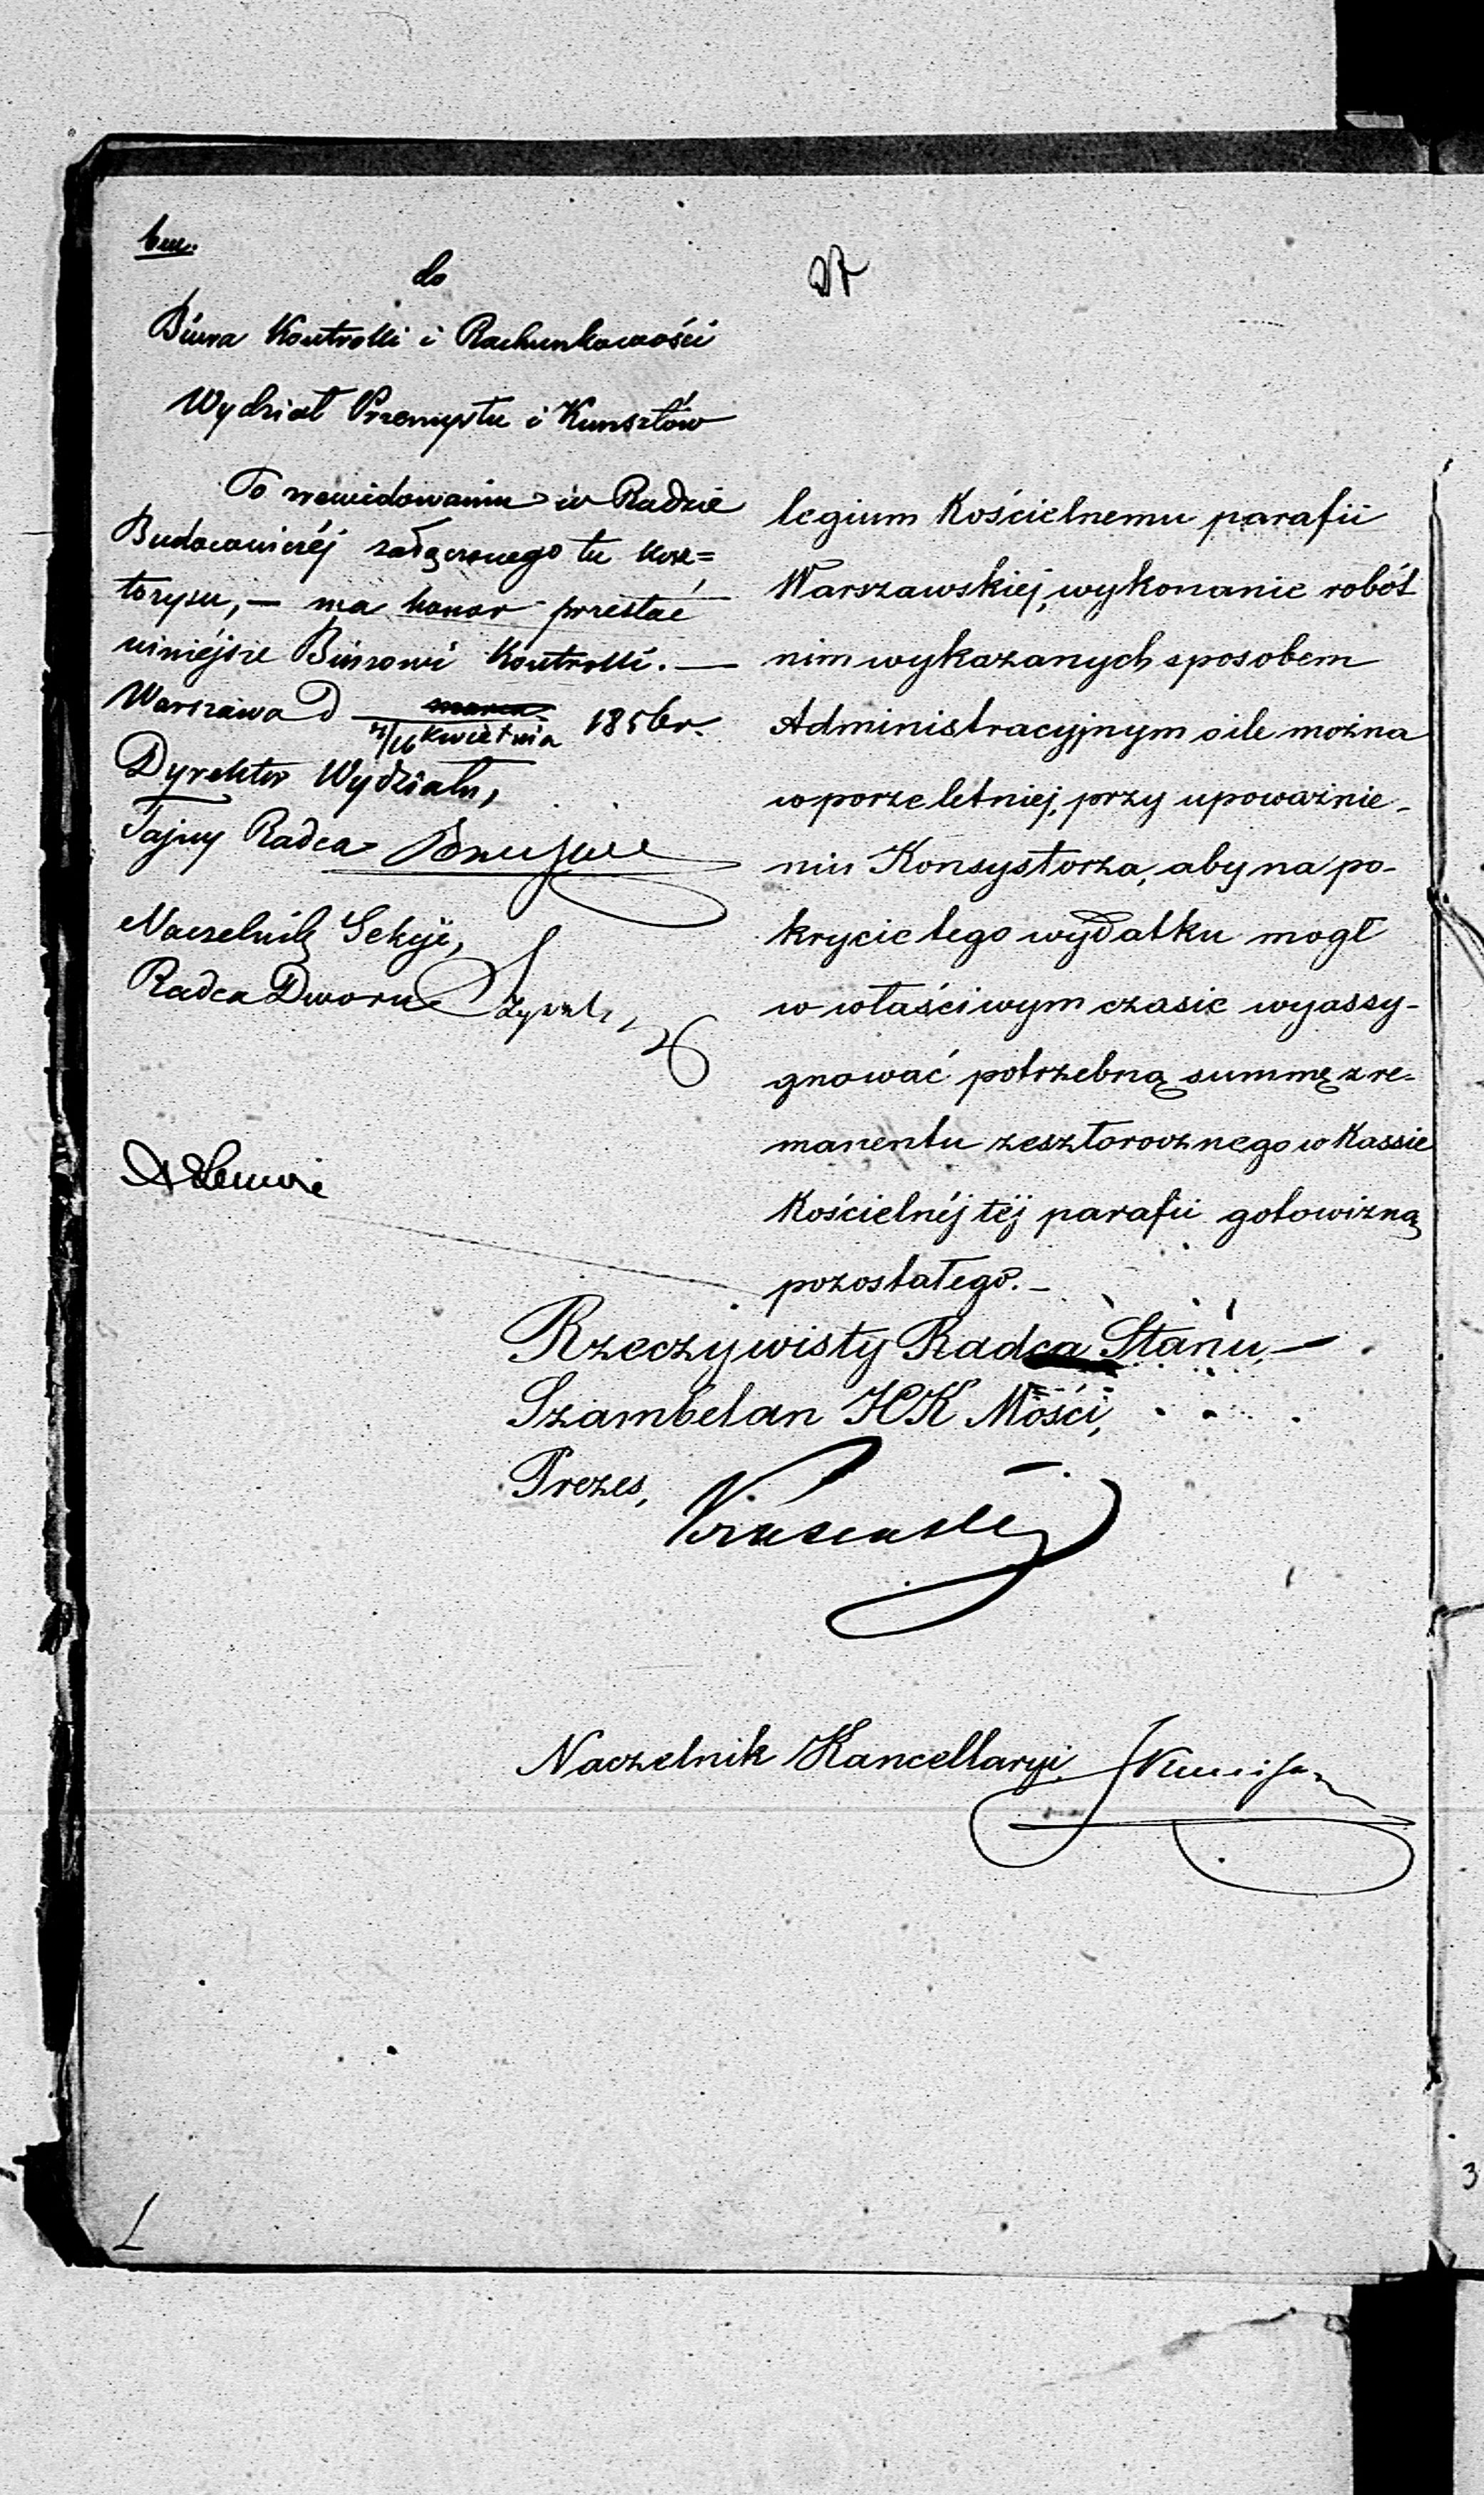 do
Biura Kontrolli i Rachunkowości
Wydział Przemysłu i Kunsztów
Po zrewidowaniu w Radzie
Budowniczéj załączonego tu kosz=
torysu, — ma honor przesłać
niniéjsze Biurowi Kontrolli. —
Warszawa D marca 1856 r.
4/16 Kwietnia
Dyrektor Wydziału,
Tajny Radca
Naczelnik Sekcyi,
Radca Dworu
legium Kościelnemu parafii
Warszawskiej, wykonanie robót
nim wykazanych sposobem
Administracyjnym o ile można
w porze letniej, przy upoważnie-
niu Konsystorza, aby na po-
krycie tego wydatku mogł
w właściwym czasie wyassy-
gnować potrzebną summę z re-
manentu zeszłorocznego w Kassie
Kościelnéj téj parafii gotowizną
pozostałego. —
Rzeczywisty Radca Stanu, —
Szambelan JCK Mości,
Prezes,
Naczelnik Kancellaryi
3